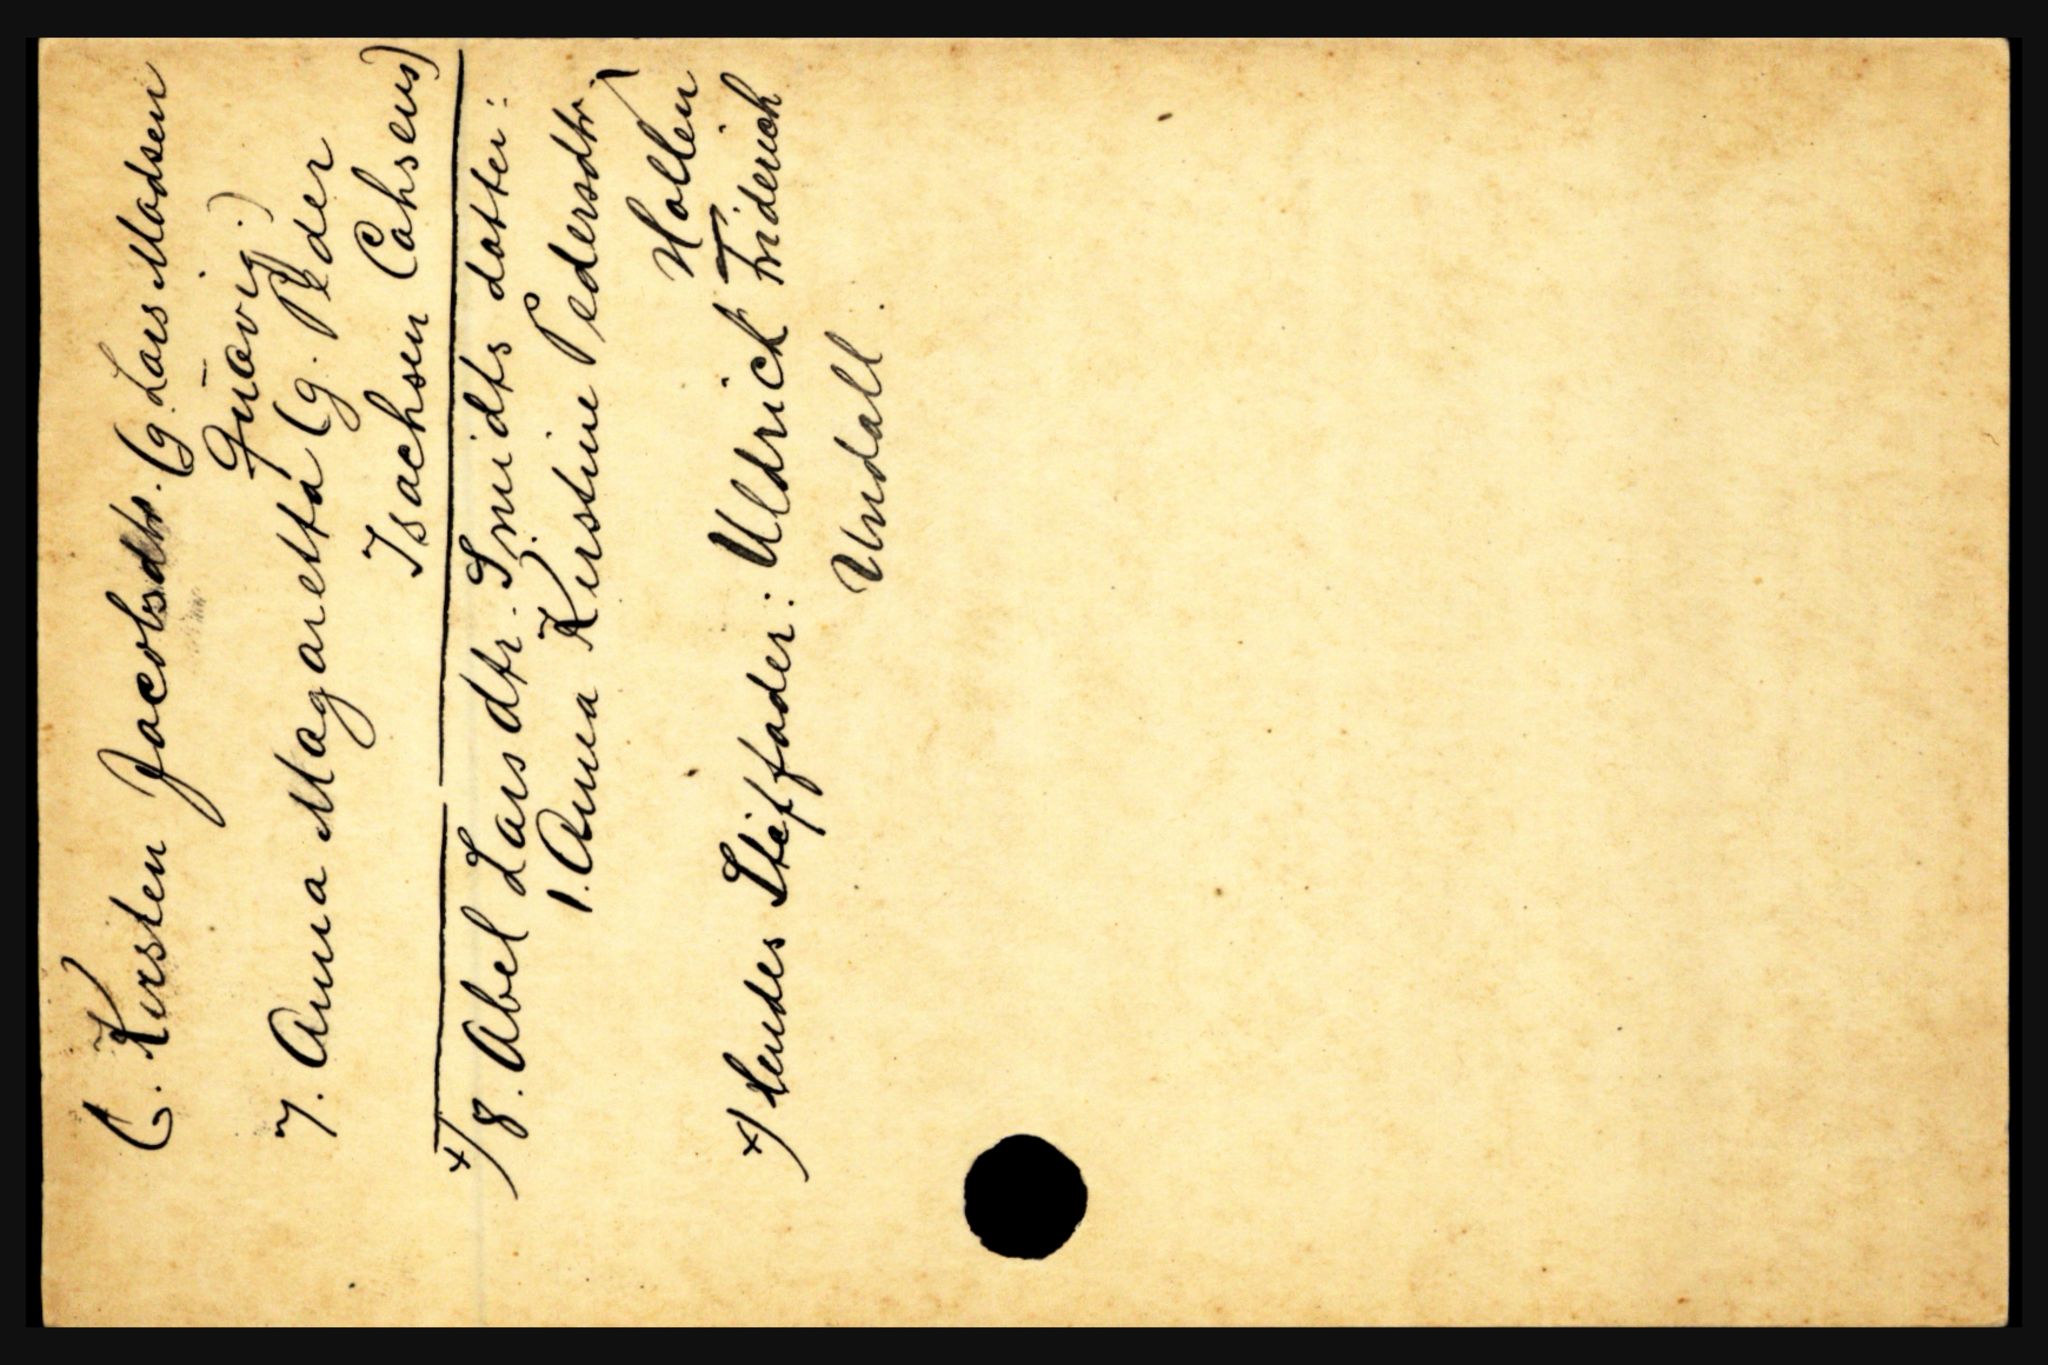 6. Kirsten Jacobsdtr. (g. Lars Madsen
Qúävig.)
7. Anna Magaretta (g. Peder
Isachsen Cahsens)
+) 8. Abel Larsdtr. Smidts datter:
1. Anna Kirstine Pedersdtr.
Hollen
+) hendes Stiffader: Uldrich Friderich
Undall.